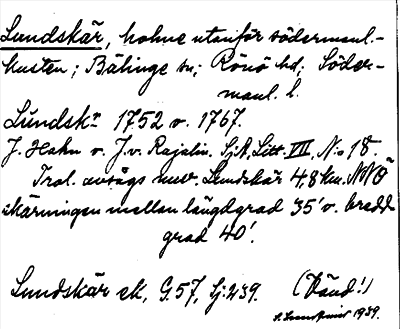 Lundskär, holme utanför södermanl.-
kusten; Bälinge sn; Rönö hd; Söder-
manl. l.
Lundskr 1752 o. 1767.
J. Hahn o. J. v. Rajalin. SjA, Litt. VIII, N:o 18
Trol. avsågs nuv. Lundskär 4,8 km. NNÖ
skärningen mellan längdgrad 35' o. bredd
grad 40'.
Lundskär ek, G. 57, Sj: 239. (Vänd!)
1939.